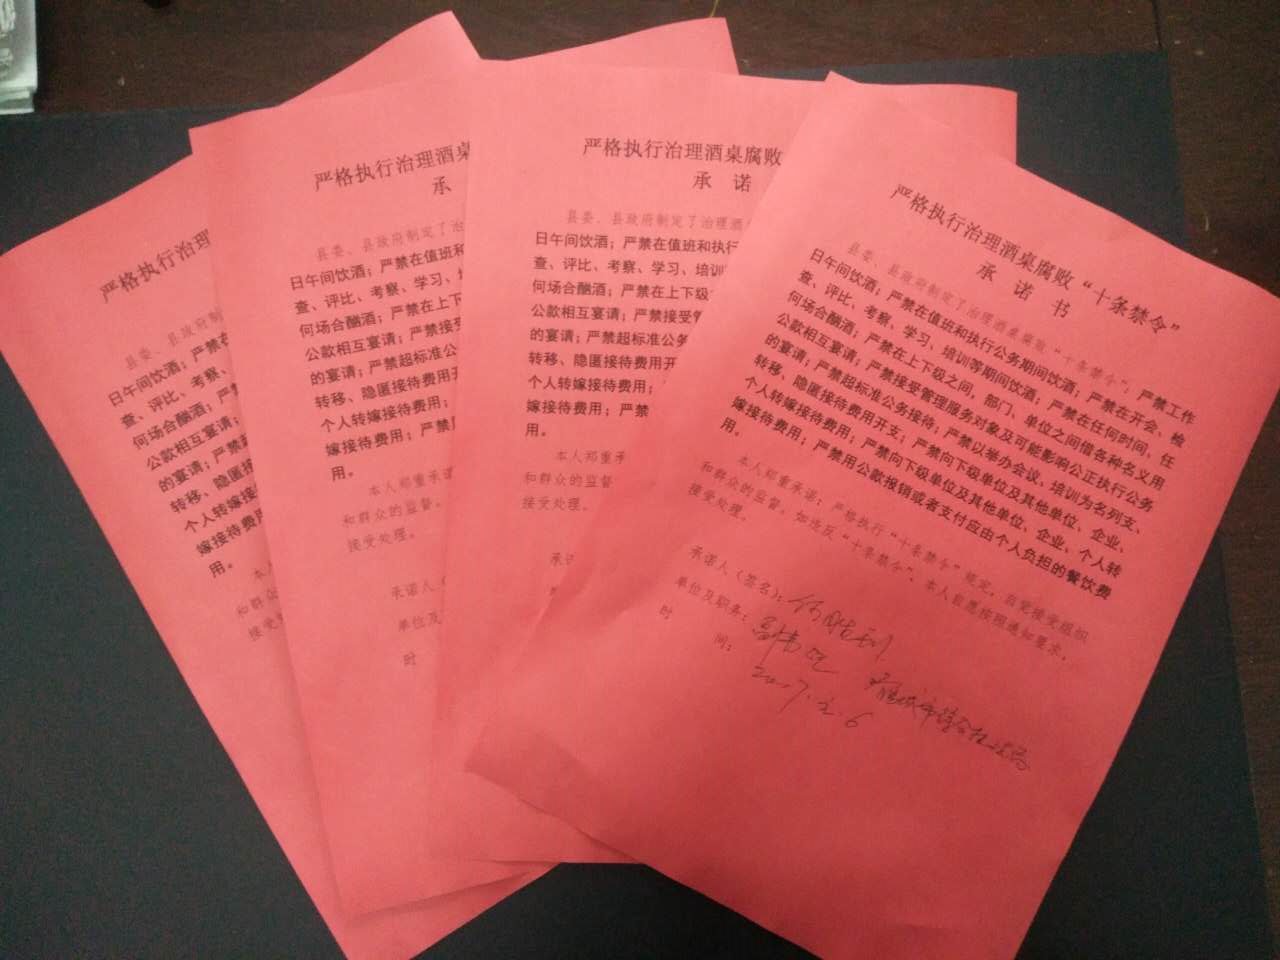 严格执行治理
县委、县政府制
日午间饮酒；严禁在
查、评比、考察、
何场合酗酒；严禁
公款相互宴请；
的宴请；严禁
转移、隐匿接
个人转嫁接待
嫁接待费用
用。
本人
和群众的
接受处理
严格执行治理酒桌
承
县委、县政府制定了治
日午间饮酒；严禁在值班和
查、评比、考察、学习、培
何场合酗酒；严禁在上下
公款相互宴请；严禁接受
的宴请；严禁超标准公
转移、隐匿接待费用开
个人转嫁接待费用；
嫁接待费用；严禁
用。
本人郑重承
和群众的监督。
接受处理。
承诺人（
单位及
时
严格执行治理酒桌腐败
承 诺
县委、县政府制定了治理酒
日午间饮酒；严禁在值班和执行
查、评比、考察、学习、培训
何场合酗酒；严禁在上下级
公款相互宴请；严禁接受管
的宴请；严禁超标准公务
转移、隐匿接待费用开支
个人转嫁接待费用；
嫁接待费用；严禁
用。
本人郑重承
和群众的监督
接受处理。
承
严格执行治理酒桌腐败“十条禁令”
承 诺 书
县委、县政府制定了治理酒桌腐败“十条禁令”：严禁工作
日午间饮酒；严禁在值班和执行公务期间饮酒；严禁在开会、检
查、评比、考察、学习、培训等期间饮酒；严禁在任何时间、任
何场合酗酒；严禁在上下级之间，部门、单位之间借各种名义用
公款相互宴请；严禁接受管理服务对象及可能影响公正执行公务
的宴请；严禁超标准公务接待；严禁以举办会议、培训为名列支、
转移、隐匿接待费用开支；严禁向下级单位及其他单位、企业、
个人转嫁接待费用；严禁向下级单位及其他单位、企业、个人转
嫁接待费用；严禁用公款报销或者支付应由个人负担的餐饮费
用。
本人郑重承诺：严格执行“十条禁令”规定，自觉接受组织
和群众的监督。如违反“十条禁令”，本人自愿按照通知要求，
接受处理。
承诺人（签名）：
单位及职务：
时 间：2017.2.6